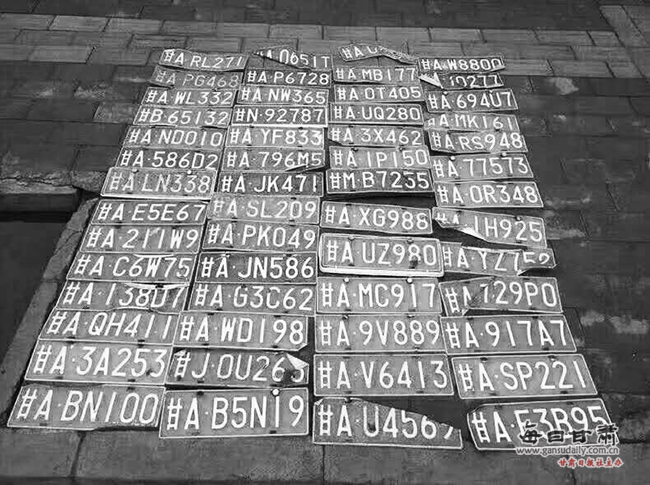 甘A·RL271
甘A·0651T
甘A·U
甘A·W8800
甘A·PG468
甘A·P6728
甘A·MB177
10277
甘A·WL332
甘A·NW365
甘A·0T405
甘A·694U7
甘B·65132
甘N·92787
甘A·UQ280
甘A·MK161
甘A·ND010
甘A·YF833
甘A·3X462
甘A·RS948
甘A·586D2
甘A·796M5
甘A·1P150
甘A·77573
甘A·LN338
甘A·JK471
甘M·B7255
甘A·0R348
甘A·E5E67
甘A·SL209
甘A·XG988
甘A·1H925
甘A·211W9
甘A·PK049
甘A·UZ980
甘A·YZ752
甘A·C6W75
甘A·JN586
甘A·MC917
甘A·129P0
甘A·138D7
甘A·G3C62
甘A·9V889
甘A·917A7
甘A·QH411
甘A·WD198
甘A·V6413
甘A·SP221
甘A·3A253
甘J·0U263
甘A·U4567
甘A·F3B95
甘A·BN100
甘A·B5N19
每日甘肃
www.gansudaily.com.cn
甘肃日报社主办